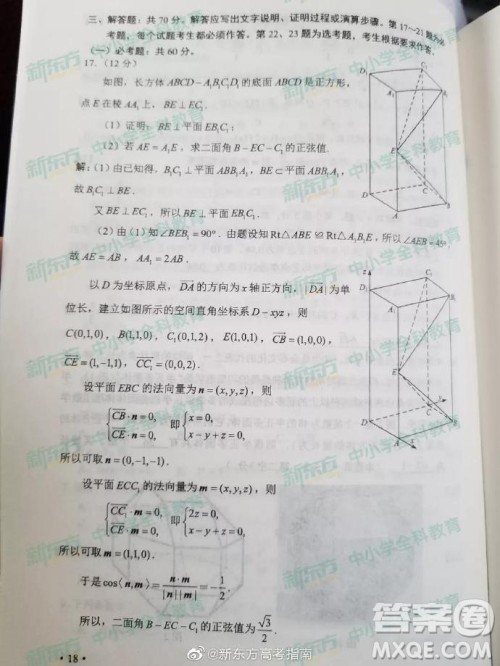 三、解答题：共 70 分。解答应写出文字说明、证明过程或演算步骤。第 17~21 题为必
考题，每个试题考生都必须作答。第 22、23 题为选考题，考生根据要求作答。
（一）必考题：共 60 分。
17.（12 分）
如图，长方体 ABCD－A₁B₁C₁D₁ 的底面 ABCD 是正方形，
点 E 在棱 AA₁ 上，BE⊥EC₁.
（1）证明：BE⊥平面 EB₁C₁；
（2）若 AE=A₁E，求二面角 B－EC－C₁ 的正弦值.
解：（1）由已知得，B₁C₁⊥平面 ABB₁A₁，BE⊂平面 ABB₁A₁，
故 B₁C₁⊥BE.
又 BE⊥EC₁，所以 BE⊥平面 EB₁C₁.
（2）由（1）知∠BEB₁=90°. 由题设知 Rt△ABE≌Rt△A₁B₁E，所以∠AEB=45°，
故 AE=AB，AA₁=2AB.
以 D 为坐标原点，$\overrightarrow{DA}$ 的方向为 x 轴正方向，|$\overrightarrow{DA}$| 为单
位长，建立如图所示的空间直角坐标系 D－xyz，则
C(0,1,0)，B(1,1,0)，C₁(0,1,2)，E(1,0,1)，$\overrightarrow{CB}$=(1,0,0)，
$\overrightarrow{CE}$=(1,-1,1)，$\overrightarrow{CC_1}$=(0,0,2).
设平面 EBC 的法向量为 n=(x,y,z)，则
{$\overrightarrow{CB}$·n=0, $\overrightarrow{CE}$·n=0, 即{x=0, x-y+z=0,
所以可取 n=(0,-1,-1).
设平面 ECC₁ 的法向量为 m=(x,y,z)，则
{$\overrightarrow{CC_1}$·m=0, $\overrightarrow{CE}$·m=0, 即{2z=0, x-y+z=0,
所以可取 m=(1,1,0).
于是 cos⟨n,m⟩=$\frac{n·m}{|n||m|}$=-$\frac{1}{2}$，
所以，二面角 B－EC－C₁ 的正弦值为 $\frac{\sqrt{3}}{2}$.
· 18 ·
@新东方高考指南
答案圈
MXQE.COM
新东方 中小学全科教育